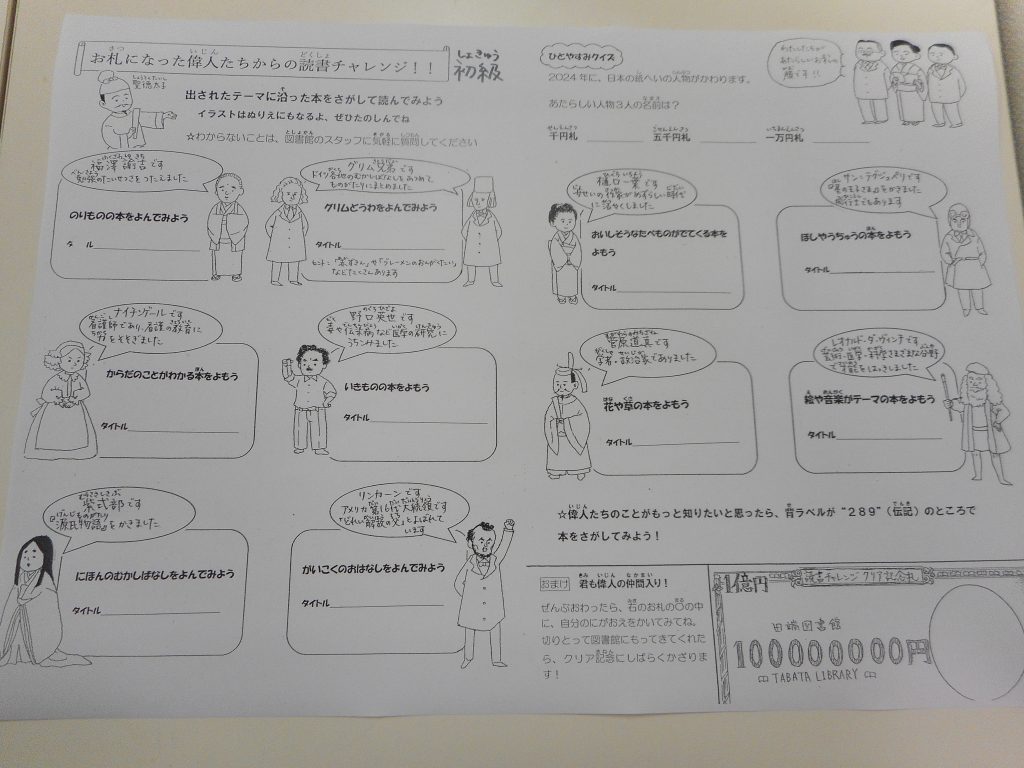 お札になった偉人たちからの読書チャレンジ！！
しょきゅう
初級
しょうとくたいし
聖徳太子
出されたテーマに沿った本をさがして読んでみよう
イラストはぬりえにもなるよ、ぜひたのしんでね
☆わからないことは、図書館のスタッフに気軽に質問してください
福澤諭吉です
勉強のたいせつさをつたえました
のりものの本をよんでみよう
グリム兄弟です
ドイツ各地のむかしばなしをあつめて
ものがたりにまとめました
グリムどうわをよんでみよう
タイトル
などたくさんあります
ナイチンゲールです
看護師であり、看護の教育に
力をそそぎました
からだのことがわかる本をよもう
タイトル
野口英世です
毒や伝染病など医学の研究に
うちこみました
いきものの本をよもう
タイトル
紫式部です
『源氏物語』をかきました
にほんのむかしばなしをよんでみよう
タイトル
リンカーンです
アメリカ第16代大統領です
「どれい解放の父」とよばれて
います
がいこくのおはなしをよんでみよう
タイトル
ひとやすみクイズ
2024年に、日本の紙へいの人物がかわります。
あたらしい人物3人の名前は？
千円札
五千円札
一万円札
わたしたちが
あたらしいお札の
顔です!!
樋口一葉です
女せいの作家がめずらしい時代
に活やくしました
おいしそうなたべものがでてくる本を
よもう
タイトル
サン・テグジュペリです
「星の王子さま」をかきました
飛行士でもあります
ほしやうちゅうの本をよもう
タイトル
菅原道真です
学者・政治家でありました
花や草の本をよもう
タイトル
レオナルド・ダ・ヴィンチです
芸術・医学・科学さまざまな分野
で才能をはっきしました
絵や音楽がテーマの本をよもう
タイトル
☆偉人たちのことがもっと知りたいと思ったら、背ラベルが“289”（伝記）のところで
本をさがしてみよう！
おまけ 君も偉人の仲間入り！
ぜんぶおわったら、右のお札の〇の中
に、自分のにがおえをかいてみてね。
切りとって図書館にもってきてくれた
ら、クリア記念にしばらくかざりま
す！
1億円
読書チャレンジクリア記念札
田端図書館
100000000円
TABATA LIBRARY